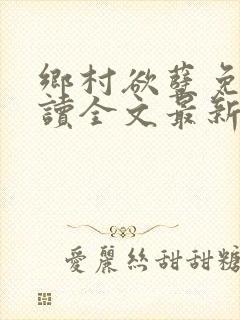 鄉村欲孽免
讀全文最新
愛麗絲甜甜糖